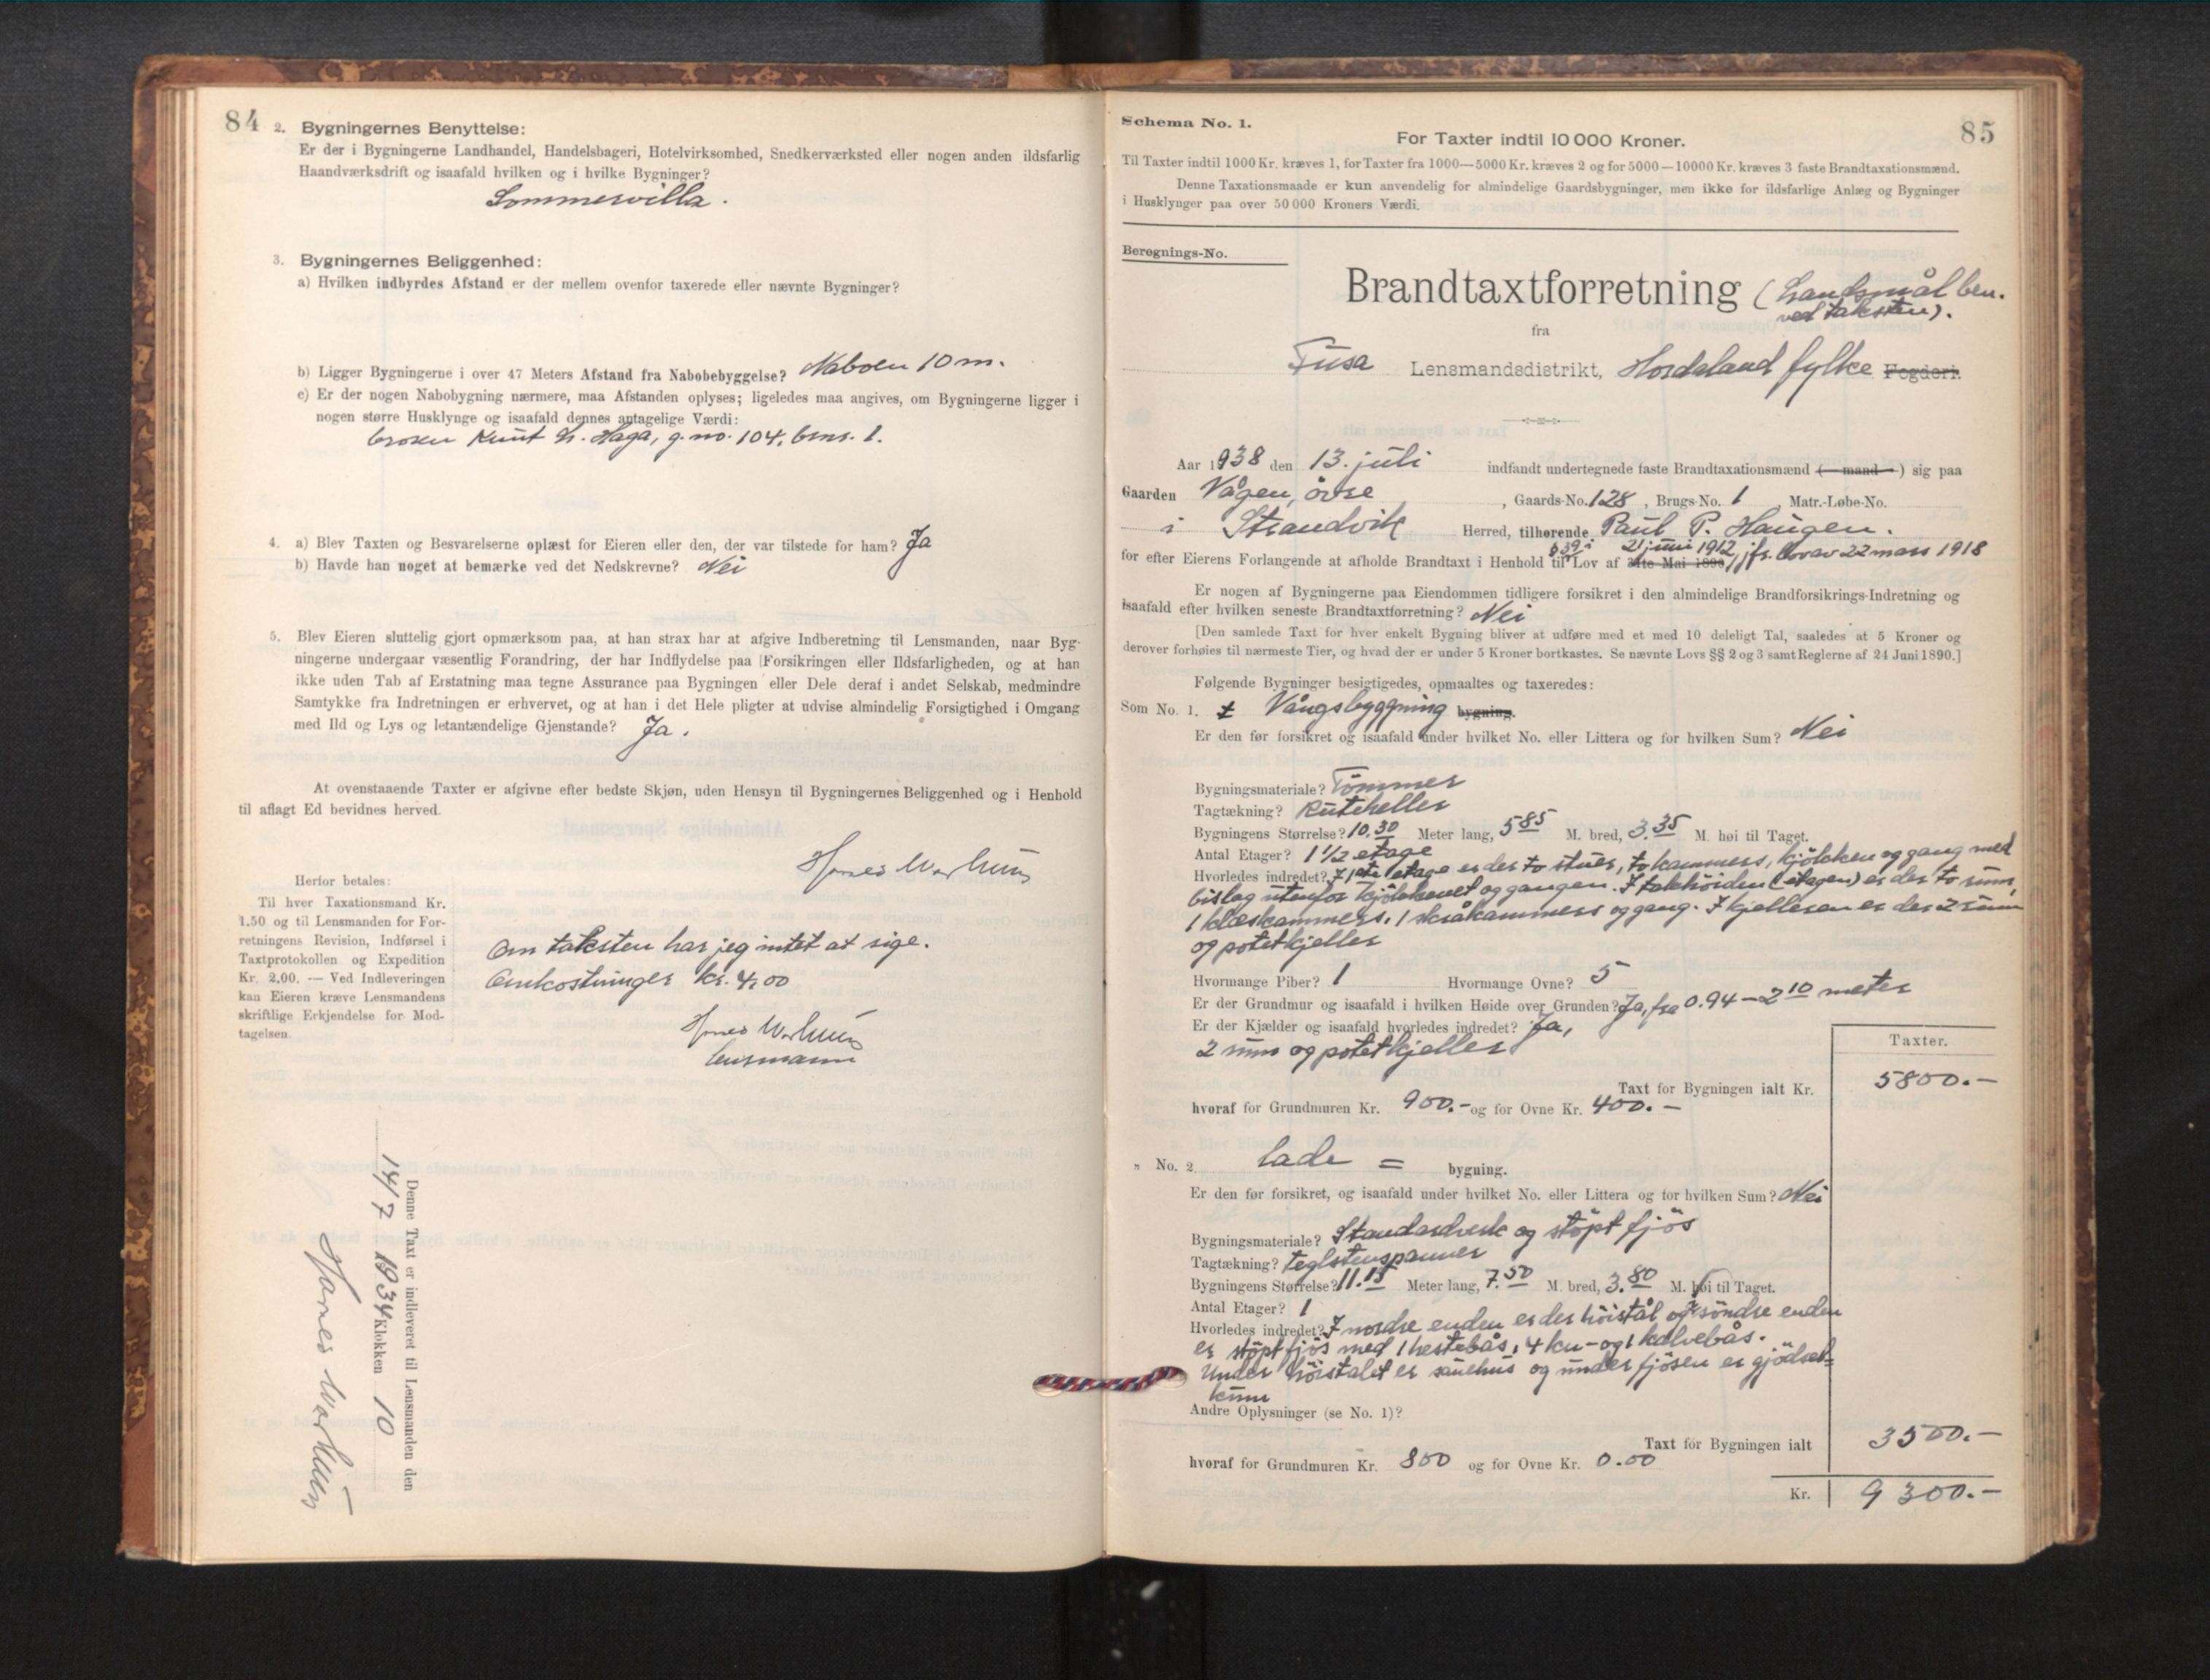 84
2. Bygningernes Benyttelse:
Er der i Bygningerne Landhandel, Handelsbageri, Hotelvirksomhed, Snedkerværksted eller nogen anden ildsfarlig
Haandværksdrift og isaafald hvilken og i hvilke Bygninger?
Sommervilla.
3. Bygningernes Beliggenhed:
a) Hvilken indbyrdes Afstand er der mellem ovenfor taxerede eller nævnte Bygninger?
b) Ligger Bygningerne i over 47 Meters Afstand fra Nabobebyggelse? Naboen 10 m.
c) Er der nogen Nabobygning nærmere, maa Afstanden oplyses; ligeledes maa angives, om Bygningerne ligger i
nogen større Husklynge og isaafald dennes antagelige Værdi:
Knut Haga, g.no. 104, bnr. 1.
4. a) Blev Taxten og Besvarelserne oplæst for Eieren eller den, der var tilstede for ham? Ja
b) Havde han noget at bemærke ved det Nedskrevne? Nei
5. Blev Eieren sluttelig gjort opmærksom paa, at han strax har at afgive Indberetning til Lensmanden, naar Byg-
ningerne undergaar væsentlig Forandring, der har Indflydelse paa Forsikringen eller Ildsfarligheden, og at han
ikke uden Tab af Erstatning maa tegne Assurance paa Bygningen eller Dele deraf i andet Selskab, medmindre
Samtykke fra Indretningen er erhvervet, og at han i det Hele pligter at udvise almindelig Forsigtighed i Omgang
med Ild og Lys og letantændelige Gjenstande? Ja.
At ovenstaaende Taxter er afgivne efter bedste Skjøn, uden Hensyn til Bygningernes Beliggenhed og i Henhold
til aflagt Ed bevidnes herved.
Herfor betales:
Til hver Taxationsmand Kr.
1.50 og til Lensmanden for For-
retningens Revision, Indførsel i
Taxtprotokollen og Expedition
Kr. 2.00. — Ved Indleveringen
kan Eieren kræve Lensmandens
skriftlige Erkjendelse for Mod-
tagelsen.
Om taksten har jeg intet at sige.
Omkostninger kr. 4,00
lensmann
Denne Taxt er indleveret til Lensmanden den
14/7 1934 Klokken 10
85
Schema No. 1.
For Taxter indtil 10 000 Kroner.
Til Taxter indtil 1000 Kr. kræves 1, for Taxter fra 1000—5000 Kr. kræves 2 og for 5000—10000 Kr. kræves 3 faste Brandtaxationsmænd.
Denne Taxationsmaade er kun anvendelig for almindelige Gaardsbygninger, men ikke for ildsfarlige Anlæg og Bygninger
i Husklynger paa over 50 000 Kroners Værdi.
Beregnings-No.
Brandtaxtforretning (Landsmål ben.
ved taksten).
fra
Fusa Lensmandsdistrikt, Hordaland fylke Fogderi.
Aar 1938 den 13. juli indfandt undertegnede faste Brandtaxationsmænd (—mand—) sig paa
Gaarden Vågen, övre, Gaards-No. 128, Brugs-No. 1, Matr.-Løbe-No.
i Strandvik Herred, tilhørende Paul P. Haugen.
§ 39 i 21 juni 1912, jfr. lov av 22 mars 1918
for efter Eierens Forlangende at afholde Brandtaxt i Henhold til Lov af Mai
Er nogen af Bygningerne paa Eiendommen tidligere forsikret i den almindelige Brandforsikrings-Indretning og
isaafald efter hvilken seneste Brandtaxtforretning? Nei
[Den samlede Taxt for hver enkelt Bygning bliver at udføre med et med 10 deleligt Tal, saaledes at 5 Kroner og
derover forhøies til nærmeste Tier, og hvad der er under 5 Kroner bortkastes. Se nævnte Lovs §§ 2 og 3 samt Reglerne af 24 Juni 1890.]
Følgende Bygninger besigtigedes, opmaaltes og taxeredes:
Som No. 1. Vångsbyggning bygning.
Er den før forsikret og isaafald under hvilket No. eller Littera og for hvilken Sum? Nei
Bygningsmateriale? Tömmer
Tagtækning? Ruteheller
Bygningens Størrelse? 10.30 Meter lang, 5 85 M. bred, 3.35 M. høi til Taget.
Antal Etager? 1 1/2 etage
Hvorledes indret? I 1ste etage er der to stuer, to kammers, kjökken og gang med
bislag utenfor kjökkenet og gangen. I takhöiden (etagen) er der to rum,
1 klæskammers, 1 skråkammers og gang. I kjelleren er der 2 rum
og potetkjeller
Hvormange Piber? 1 Hvormange Ovne? 5
Er der Grundmur og isaafald i hvilken Høide over Grunden? Ja, fra 0.94 – 2 10 meter
Er der Kjælder og isaafald hvorledes indredet? Ja,
2 rum og potetkjeller
Taxter.
Taxt for Bygningen ialt Kr. 5800.–
hvoraf for Grundmuren Kr. 900.– og for Ovne Kr. 400.–
„ No. 2 Lade = bygning.
Er den før forsikret, og isaafald under hvilket No. eller Littera og for hvilken Sum? Nei
Bygningsmateriale? Standardverk og stöpt fjös
Tagtækning? teglstenspanner
Bygningens Størrelse? 11.15 Meter lang, 7.50 M. bred, 3.80 M. høi til Taget.
Antal Etager? 1
Hvorledes indredet? I nordre enden er der höistål og i söndre enden
er stöpt fjös med 1 hestebås, 4 ku- og 1 kalvebås.
Under höistålet er sauehus og under fjösen er gjödsel=
kum
Andre Oplysninger (se No. 1)?
Taxt for Bygningen ialt 3500.–
hvoraf for Grundmuren Kr. 800 og for Ovne Kr. 0.00
Kr. 9300.–